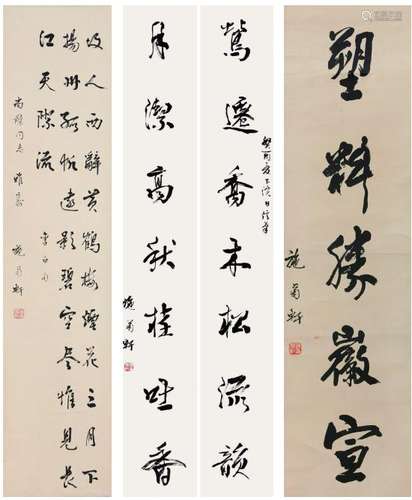 塑料勝徽宣
施菊軒
鶯遷喬木松流韻
月潔高秋桂吐香
施菊軒
故人西辭黃鶴樓煙花三月下
揚州孤帆遠影碧空盡惟見長
江天際流 李白句
同志雅屬 施菊軒